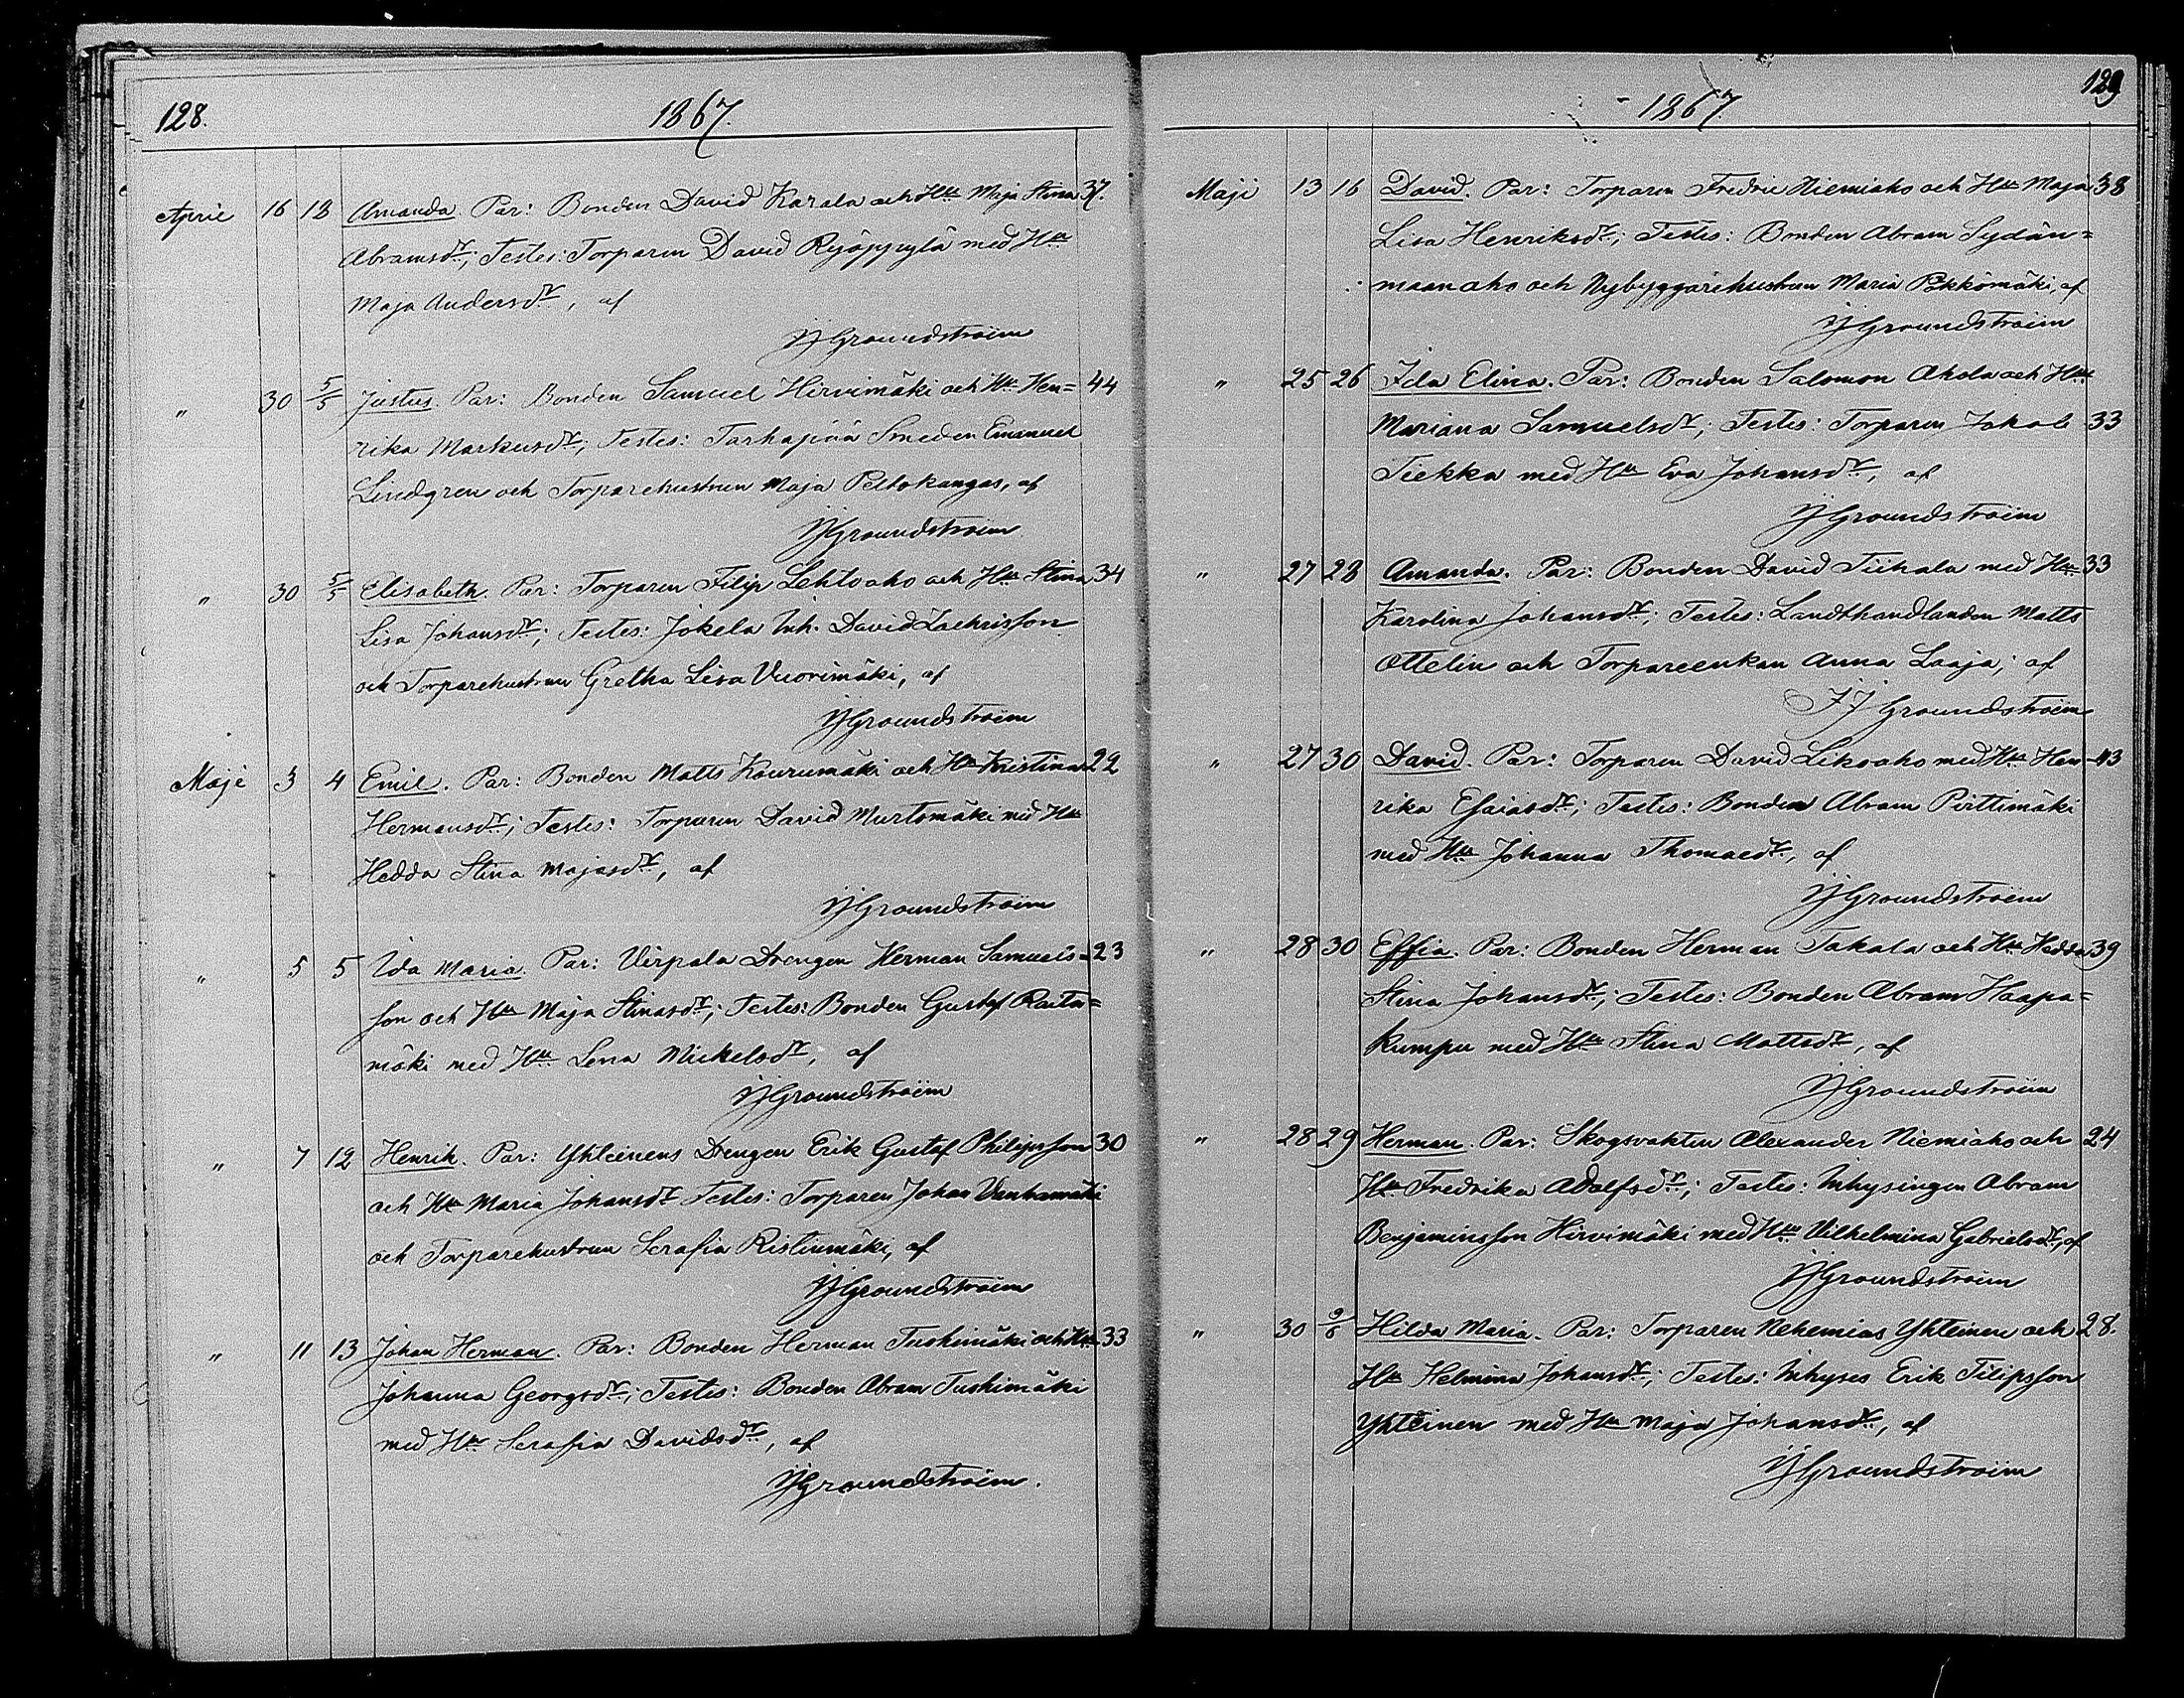 128.
1867.
April 16 18 Amanda. Par: Bonden David Karala och Hu Maja Stina 37.
Abramsdr; Testes: Torparen David Ryöppylä med Hu
Maja Andersdr, af
JJGroundstroëm
" 30 5/5 Justus. Par: Bonden Samuel Hirvimäki och Hu Hen= 44
rika Markusdr; Testes: Tarhapää Smeden Emanuel
Lindgren och Torparehustrun Maja Peltokangas, af
JJGroundstroëm
" 30 5/5 Elisabeth. Par: Torparen Filip Lehtoaho och Hu Stina 34
Lisa Johansdr; Testes: Jokela Inh. David Zachrisson
och Torparehustrun Gretha Lisa Vuorimäki, af
JJGroundstroëm
Maji 3 4 Emil. Par: Bonden Matts Kourumäki och Hu Kristina 22
Hermansdr; Testes: Torparen David Murtomäki med Hu
Hedda Stina Majasdr, af
JJGroundstroëm
" 5 5 Ida Maria. Par: Virpala Drengen Herman Samuels= 23
son och Hu Maja Stinasdr; Testes: Bonden Gustaf Rauta=
mäki med Hu Lena Mickelsdr, af
JJGroundstroëm
" 7 12 Henrik. Par: Yhteinens Drengen Erik Gustaf Philipsson 30
och Hu Maria Johansdr Testes: Torparen Johan Vanhamäki
och Torparehustrun Serafia Ristinmäki, af
JJGroundstroëm
" 11 13 Johan Herman. Par: Bonden Herman Tuohimäki och Hu 33
Johanna Georgsdr; Testes: Bonden Abram Tuohimäki
med Hu Serafia Davidsdr, af
JJGroundstroëm.
129
1867.
Maji 13 16 David. Par: Torparen Fredric Niemiaho och Hu Maja 38
Lisa Henriksdr; Testes: Bonden Abram Sydän=
maanaho och Nybyggarehustrun Maria Pökkömäki, af
JJGroundstroëm
" 25 26 Ida Elina. Par: Bonden Salomon Ahola och Hu
Mariana Samuelsdr; Testes: Torparen Jakob 33
Tiekka med Hu Eva Johansdr, af
JJGroundstroëm
" 27 28 Amanda. Par: Bonden David Tiihala med Hu 33
Karolina Johansdr; Testes: Landthandlanden Matts
Ottelin och Torpareenkan Anna Laaja; af
JJGroundstroëm
" 27 30 David. Par: Torparen David Likoaho med Hu Hen= 43
rika Esaiasdr; Testes: Bonden Abram Pirttimäki
med Hu Johanna Thomaedr, af
JJGroundstroëm
" 28 30 Effia. Par: Bonden Herman Takala och Hu Hedda 39
Stina Johansdr; Testes: Bonden Abram Haapa=
kumpu med Hu Stina Mattsdr, af
JJGroundstroëm
" 28 29 Herman. Par: Skogsvakten Alexander Niemiaho och 24
Hu Fredrika Adolfsdr; Testes: Inhysingen Abram
Benjaminsson Hirvimäki med Hu Vilhelmina Gabrielsdr, af
JJGroundstroëm
" 30 9/6 Hilda Maria. Par: Torparen Nehemias Yhteinen och 28.
Hu Helmina Johansdr; Testes: Inhyses Erik Filipsson
Yhteinen med Hu Maja Johansdr, af
JJGroundstroëm